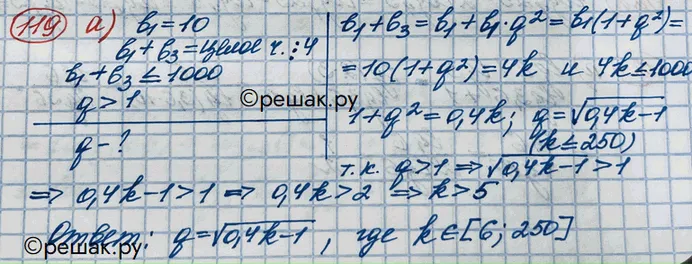 119 а) b₁=10
b₁+b₃=целое ч. ⋮4
b₁+b₃≤1000
q>1
q-?
b₁+b₃=b₁+b₁·q²=b₁(1+q²)=
=10(1+q²)=4k и 4k≤1000
©решак.ру
1+q²=0,4k; q=√(0,4k-1)
(k≤250)
т.к. q>1 ⇒ √(0,4k-1)>1
⇒ 0,4k-1>1 ⇒ 0,4k>2 ⇒ k>5
Ответ: q=√(0,4k-1), где k∈[6; 250]
©решак.ру